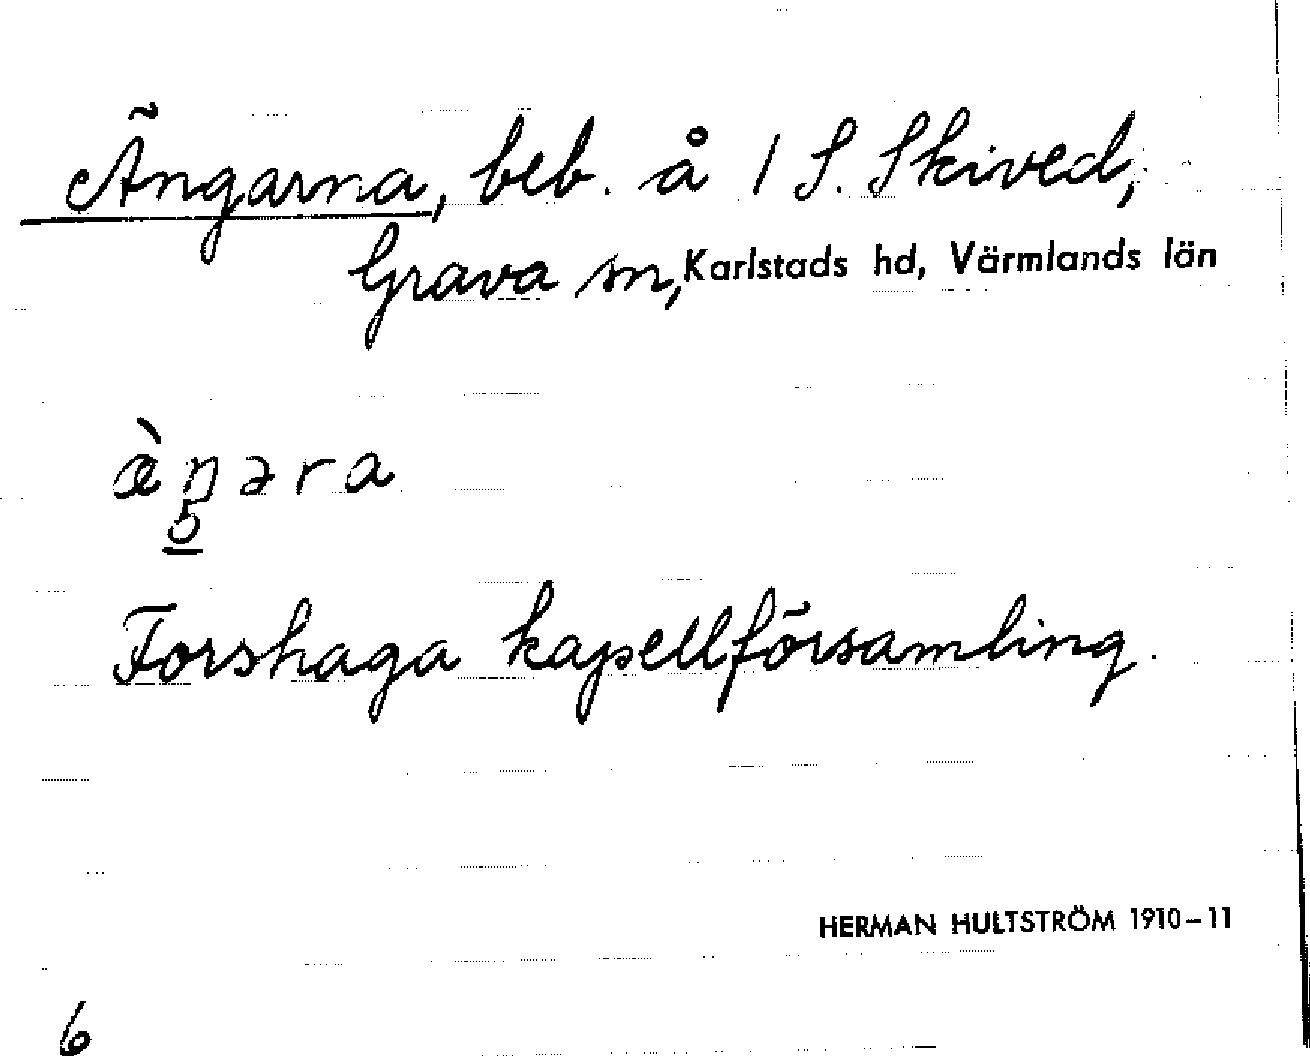 Ängarna, beb. å 1 S. Skived,
Grava sn, Karlstads hd, Värmlands län
æ̀ŋara
5
Forshaga kapellförsamling.
HERMAN HULTSTRÖM 1910–11
6